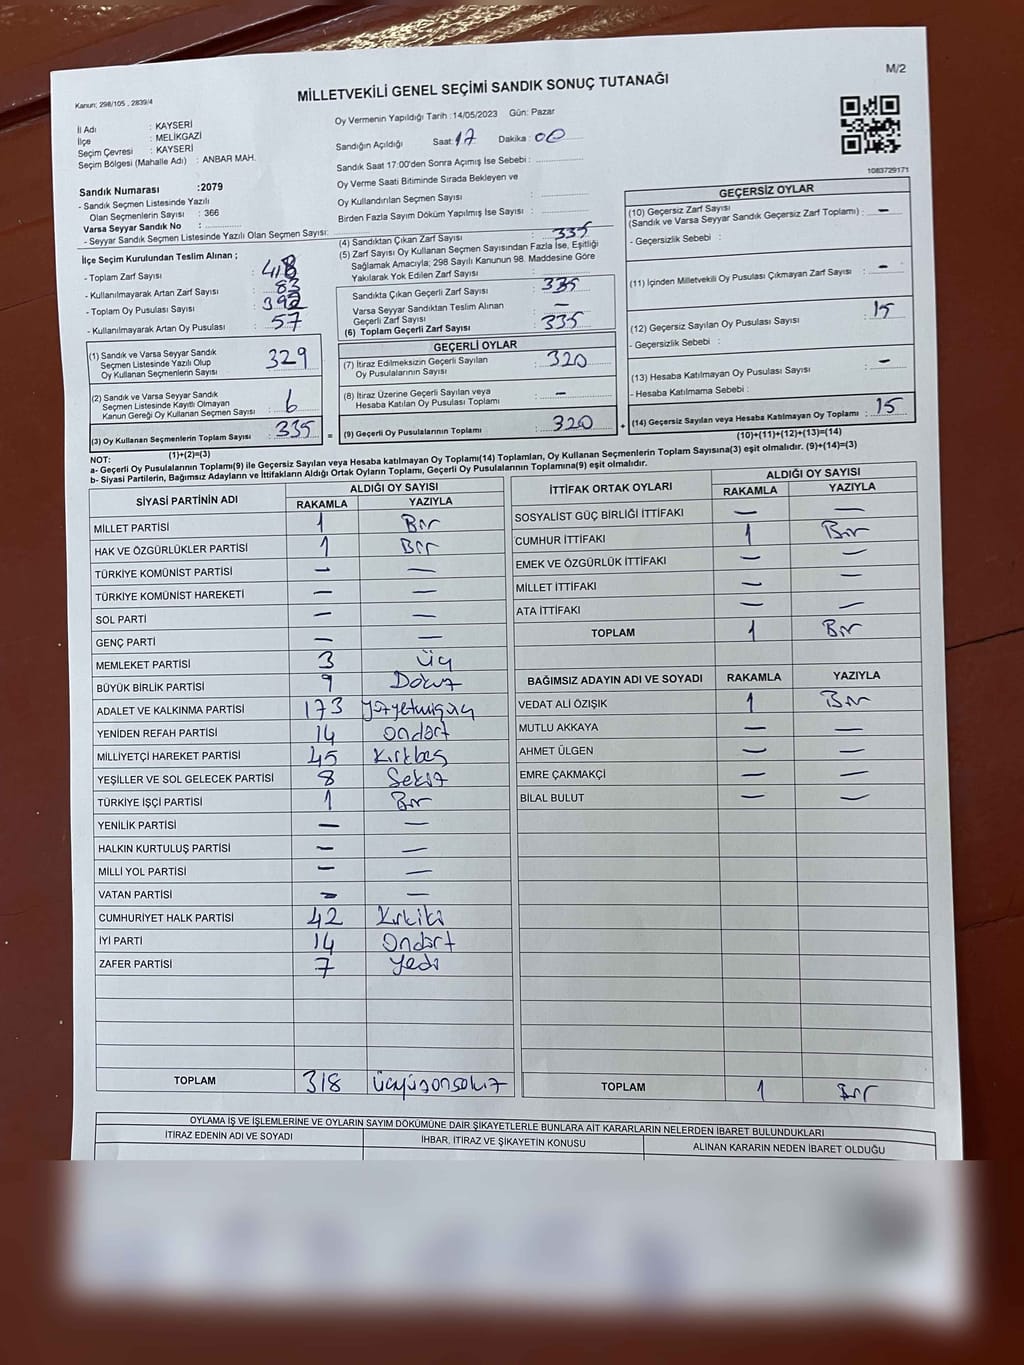 M/2
Kanun; 298/105 , 2839/4
MİLLETVEKİLİ GENEL SEÇİMİ SANDIK SONUÇ TUTANAĞI
İl Adı : KAYSERİ
İlçe : MELİKGAZİ
Seçim Çevresi : KAYSERİ
Seçim Bölgesi (Mahalle Adı) : ANBAR MAH.
Oy Vermenin Yapıldığı Tarih :14/05/2023 Gün: Pazar
Sandığın Açıldığı Saat: 17 Dakika : 00
Sandık Saat 17:00'den Sonra Açımış İse Sebebi :
Oy Verme Saati Bitiminde Sırada Bekleyen ve
Oy Kullandırılan Seçmen Sayısı :
Birden Fazla Sayım Döküm Yapılmış İse Sayısı :
1083729171
Sandık Numarası :2079
- Sandık Seçmen Listesinde Yazılı
Olan Seçmenlerin Sayısı : 366
Varsa Seyyar Sandık No :
- Seyyar Sandık Seçmen Listesinde Yazılı Olan Seçmen Sayısı:
İlçe Seçim Kurulundan Teslim Alınan ;
- Toplam Zarf Sayısı : 418
- Kullanılmayarak Artan Zarf Sayısı : 83
- Toplam Oy Pusulası Sayısı : 392
- Kullanılmayarak Artan Oy Pusulası : 57
(1) Sandık ve Varsa Seyyar Sandık
Seçmen Listesinde Yazılı Olup
Oy Kullanan Seçmenlerin Sayısı 329
(2) Sandık ve Varsa Seyyar Sandık
Seçmen Listesinde Kayıtlı Olmayan
Kanun Gereği Oy Kullanan Seçmen Sayısı : 6
(3) Oy Kullanan Seçmenlerin Toplam Sayısı : 335
(1)+(2)=(3)
(4) Sandıktan Çıkan Zarf Sayısı : 335
(5) Zarf Sayısı Oy Kullanan Seçmen Sayısından Fazla İse, Eşitliği
Sağlamak Amacıyla; 298 Sayılı Kanunun 98. Maddesine Göre
Yakılarak Yok Edilen Zarf Sayısı :
Sandıkta Çıkan Geçerli Zarf Sayısı : 335
Varsa Seyyar Sandıktan Teslim Alınan
Geçerli Zarf Sayısı : —
(6) Toplam Geçerli Zarf Sayısı : 335
GEÇERLİ OYLAR
(7) İtiraz Edilmeksizin Geçerli Sayılan
Oy Pusulalarının Sayısı : 320
(8) İtiraz Üzerine Geçerli Sayılan veya
Hesaba Katılan Oy Pusulası Toplamı : —
= (9) Geçerli Oy Pusulalarının Toplamı : 320
GEÇERSİZ OYLAR
(10) Geçersiz Zarf Sayısı
(Sandık ve Varsa Seyyar Sandık Geçersiz Zarf Toplamı) : —
- Geçersizlik Sebebi :
(11) İçinden Milletvekili Oy Pusulası Çıkmayan Zarf Sayısı : —
(12) Geçersiz Sayılan Oy Pusulası Sayısı : 15
- Geçersizlik Sebebi :
(13) Hesaba Katılmayan Oy Pusulası Sayısı : —
- Hesaba Katılmama Sebebi :
+ (14) Geçersiz Sayılan veya Hesaba Katılmayan Oy Toplamı : 15
(10)+(11)+(12)+(13)=(14)
NOT:
a- Geçerli Oy Pusulalarının Toplamı(9) ile Geçersiz Sayılan veya Hesaba katılmayan Oy Toplamı(14) Toplamları, Oy Kullanan Seçmenlerin Toplam Sayısına(3) eşit olmalıdır. (9)+(14)=(3)
b- Siyasi Partilerin, Bağımsız Adayların ve İttifakların Aldığı Ortak Oyların Toplamı, Geçerli Oy Pusulalarının Toplamına(9) eşit olmalıdır.
SİYASİ PARTİNİN ADI ALDIĞI OY SAYISI
RAKAMLA YAZIYLA
MİLLET PARTİSİ 1 Bir
HAK VE ÖZGÜRLÜKLER PARTİSİ 1 Bir
TÜRKİYE KOMÜNİST PARTİSİ — —
TÜRKİYE KOMÜNİST HAREKETİ — —
SOL PARTİ — —
GENÇ PARTİ — —
MEMLEKET PARTİSİ 3 Üç
BÜYÜK BİRLİK PARTİSİ 9 Dokuz
ADALET VE KALKINMA PARTİSİ 173 yüzyetmişüç
YENİDEN REFAH PARTİSİ 14 ondört
MİLLİYETÇİ HAREKET PARTİSİ 45 Kırkbeş
YEŞİLLER VE SOL GELECEK PARTİSİ 8 Sekiz
TÜRKİYE İŞÇİ PARTİSİ 1 Bir
YENİLİK PARTİSİ — —
HALKIN KURTULUŞ PARTİSİ — —
MİLLİ YOL PARTİSİ — —
VATAN PARTİSİ — —
CUMHURİYET HALK PARTİSİ 42 Kırkiki
İYİ PARTİ 14 Ondört
ZAFER PARTİSİ 7 Yedi
TOPLAM 318 üçyüzonsekiz
İTTİFAK ORTAK OYLARI ALDIĞI OY SAYISI
RAKAMLA YAZIYLA
SOSYALİST GÜÇ BİRLİĞİ İTTİFAKI — —
CUMHUR İTTİFAKI 1 Bir
EMEK VE ÖZGÜRLÜK İTTİFAKI — —
MİLLET İTTİFAKI — —
ATA İTTİFAKI — —
TOPLAM 1 Bir
BAĞIMSIZ ADAYIN ADI VE SOYADI RAKAMLA YAZIYLA
VEDAT ALİ ÖZIŞIK 1 Bir
MUTLU AKKAYA — —
AHMET ÜLGEN — —
EMRE ÇAKMAKÇİ — —
BİLAL BULUT — —
TOPLAM 1 Bir
OYLAMA İŞ VE İŞLEMLERİNE VE OYLARIN SAYIM DÖKÜMÜNE DAİR ŞİKAYETLERLE BUNLARA AİT KARARLARIN NELERDEN İBARET BULUNDUKLARI
İTİRAZ EDENİN ADI VE SOYADI İHBAR, İTİRAZ VE ŞİKAYETİN KONUSU ALINAN KARARIN NEDEN İBARET OLDUĞU